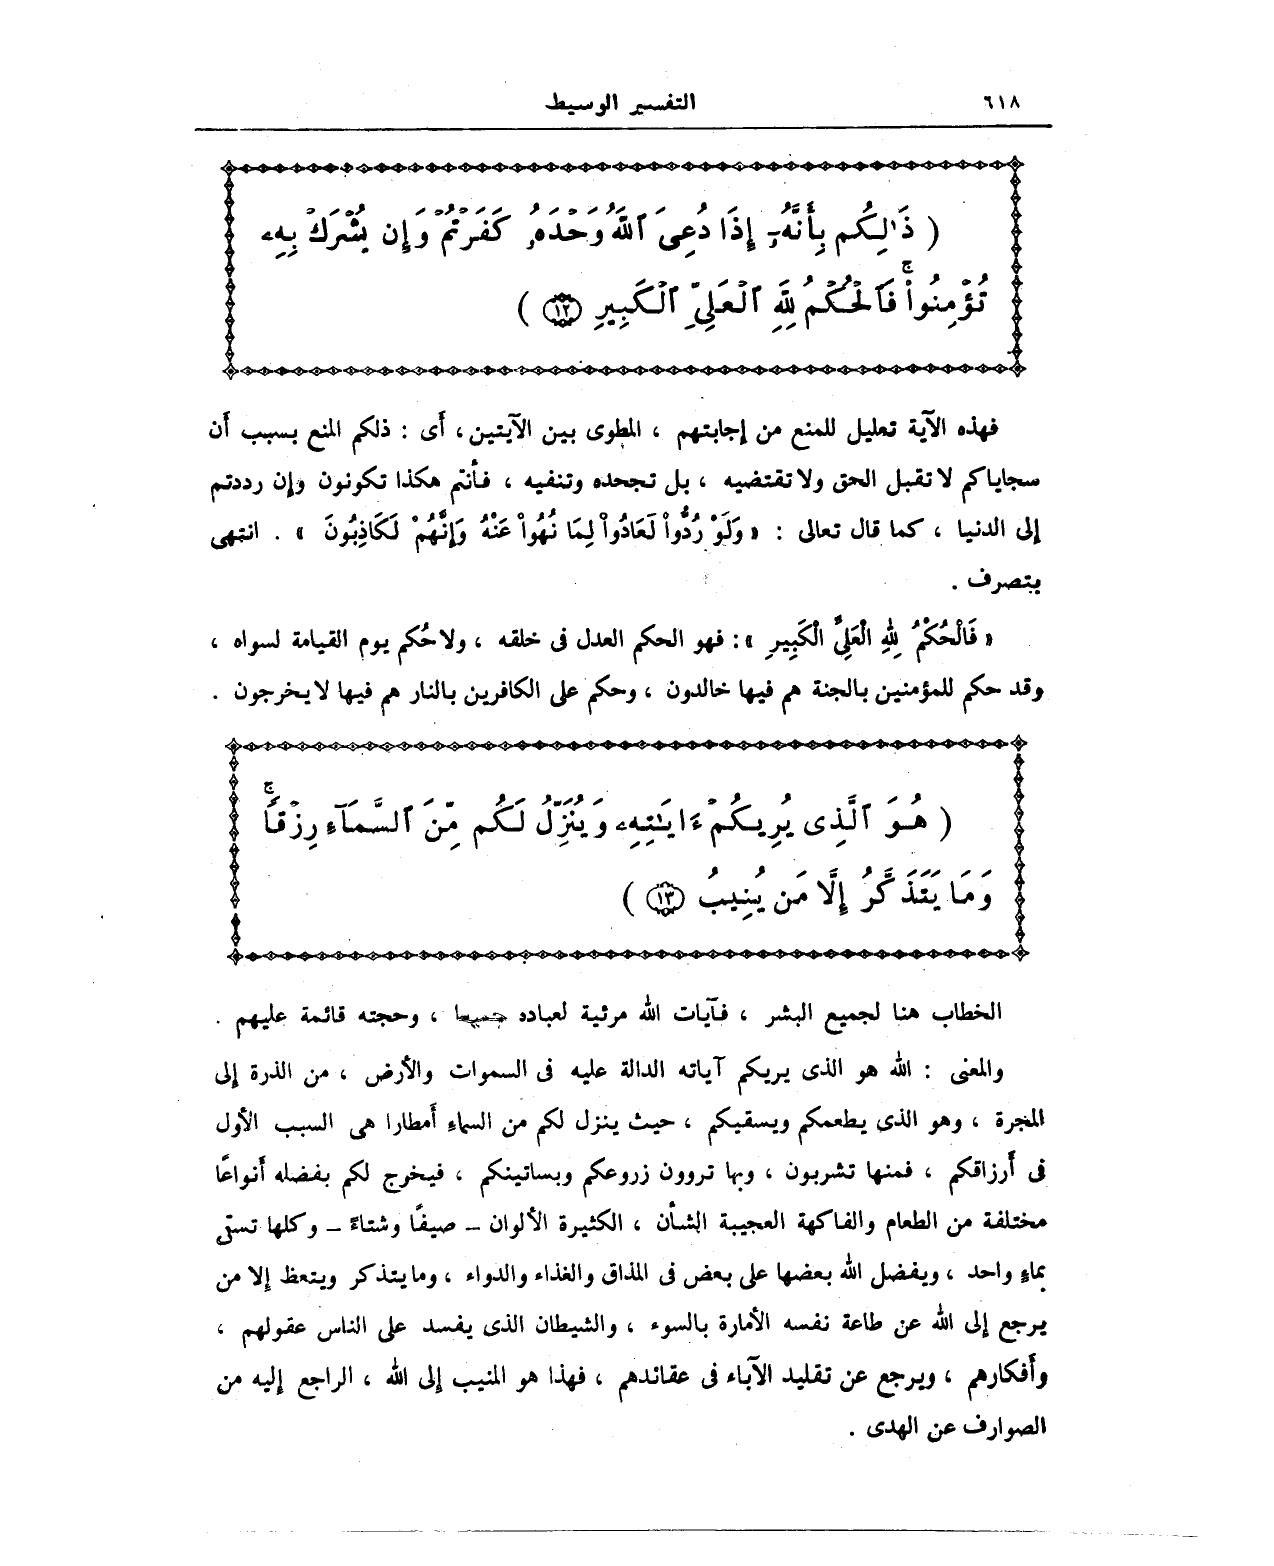 ٦١٨
التفسير الوسيط
( ذَٰلِكُم بِأَنَّهُۥٓ إِذَا دُعِىَ ٱللَّهُ وَحْدَهُۥ كَفَرْتُمْ وَإِن يُشْرَكْ بِهِۦ
تُؤْمِنُوا۟ ۚ فَٱلْحُكْمُ لِلَّهِ ٱلْعَلِىِّ ٱلْكَبِيرِ ١٢ )
فهذه الآية تعليل للمنع من إجابتهم ، المطوى بين الآيتين ، أى : ذلكم المنع بسبب أن
سجاياكم لا تقبل الحق ولا تقتضيه ، بل تجحده وتنفيه ، فأنتم هكذا تكونون وإن رددتم
إلى الدنيا ، كما قال تعالى : « وَلَوْ رُدُّواْ لَعَادُواْ لِمَا نُهُواْ عَنْهُ وَإِنَّهُمْ لَكَاذِبُونَ » . انتهى
بتصرف .
« فَالْحُكْمُ لِلهِ الْعَلِىِّ الْكَبِيرِ » : فهو الحكم العدل فى خلقه ، ولا حُكم يوم القيامة لسواه ،
وقد حكم للمؤمنين بالجنة هم فيها خالدون ، وحكم على الكافرين بالنار هم فيها لا يخرجون .
( هُوَ ٱلَّذِى يُرِيكُمْ ءَايَـٰتِهِۦ وَيُنَزِّلُ لَكُم مِّنَ ٱلسَّمَآءِ رِزْقًا ۚ
وَمَا يَتَذَكَّرُ إِلَّا مَن يُنِيبُ ١٣ )
الخطاب هنا لجميع البشر ، فآيات الله مرئية لعباده جميعا ، وحجته قائمة عليهم .
والمعنى : الله هو الذى يريكم آياته الدالة عليه فى السموات والأرض ، من الذرة إلى
المجرة ، وهو الذى يطعمكم ويسقيكم ، حيث ينزل لكم من السماء أمطارا هى السبب الأول
فى أرزاقكم ، فمنها تشربون ، وبها تروون زروعكم وبساتينكم ، فيخرج لكم بفضله أنواعًا
مختلفة من الطعام والفاكهة العجيبة الشأن ، الكثيرة الألوان – صيفًا وشتاءً – وكلها تسقى
بماءٍ واحد ، ويفضل الله بعضها على بعض فى المذاق والغذاء والدواء ، وما يتذكر ويتعظ إلا من
يرجع إلى الله عن طاعة نفسه الأمارة بالسوء ، والشيطان الذى يفسد على الناس عقولهم ،
وأفكارهم ، ويرجع عن تقليد الآباء فى عقائدهم ، فهذا هو المنيب إلى الله ، الراجع إليه من
الصوارف عن الهدى .